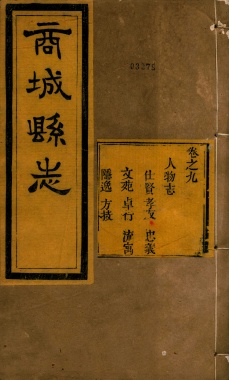 商城縣志
03375
卷之九
人物志
仕賢 孝友 忠義
文苑 卓行 流寓
隱逸 方技